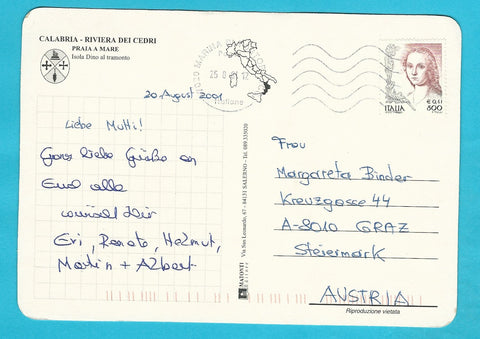 CALABRIA - RIVIERA DEI CEDRI
PRAIA A MARE
Isola Dino al tramonto
20 August 2001
Liebe Mutti!
Ganz liebe Grüße an
Euch alle
Evi, Renate, Helmut,
Martin + Albert
MATONTI
Via San Leonardo, 67 - 84131 SALERNO - Tel. 089 333020
25 8
ITALIA
€ 0,41
800
Frau
Margareta Binder
Kreuzgasse 44
A-8010 GRAZ
Steiermark
AUSTRIA
Riproduzione vietata